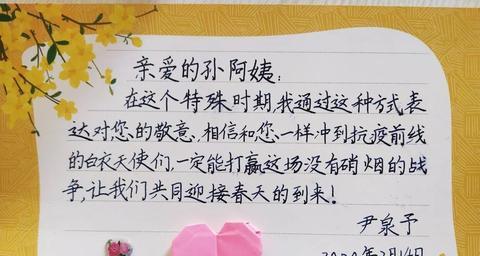 亲爱的孙阿姨:
在这个特殊时期,我通过这种方式表
达对您的敬意,相信和您一样冲到抗疫前线
的白衣天使们,一定能打赢这场没有硝烟的战
争,让我们共同迎接春天的到来!
尹泉予
2020年2月14日